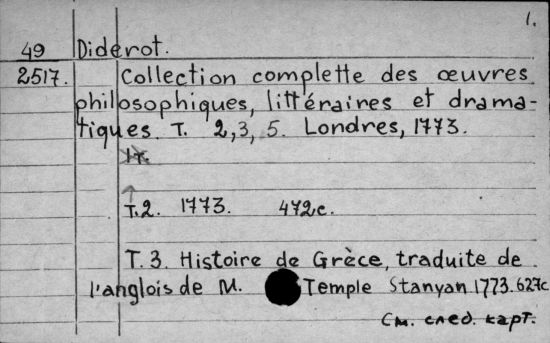 1.
49 Diderot.
2517. Collection complette des œuvres
philosophiques, littéraires et drama-
tiques. T. 2, 3, 5. Londres, 1773.
T.2. 1773. 472c.
T. 3. Histoire de Grèce, traduite de
l'anglois de M. Temple Stanyan 1773. 627c
См. след. карт.